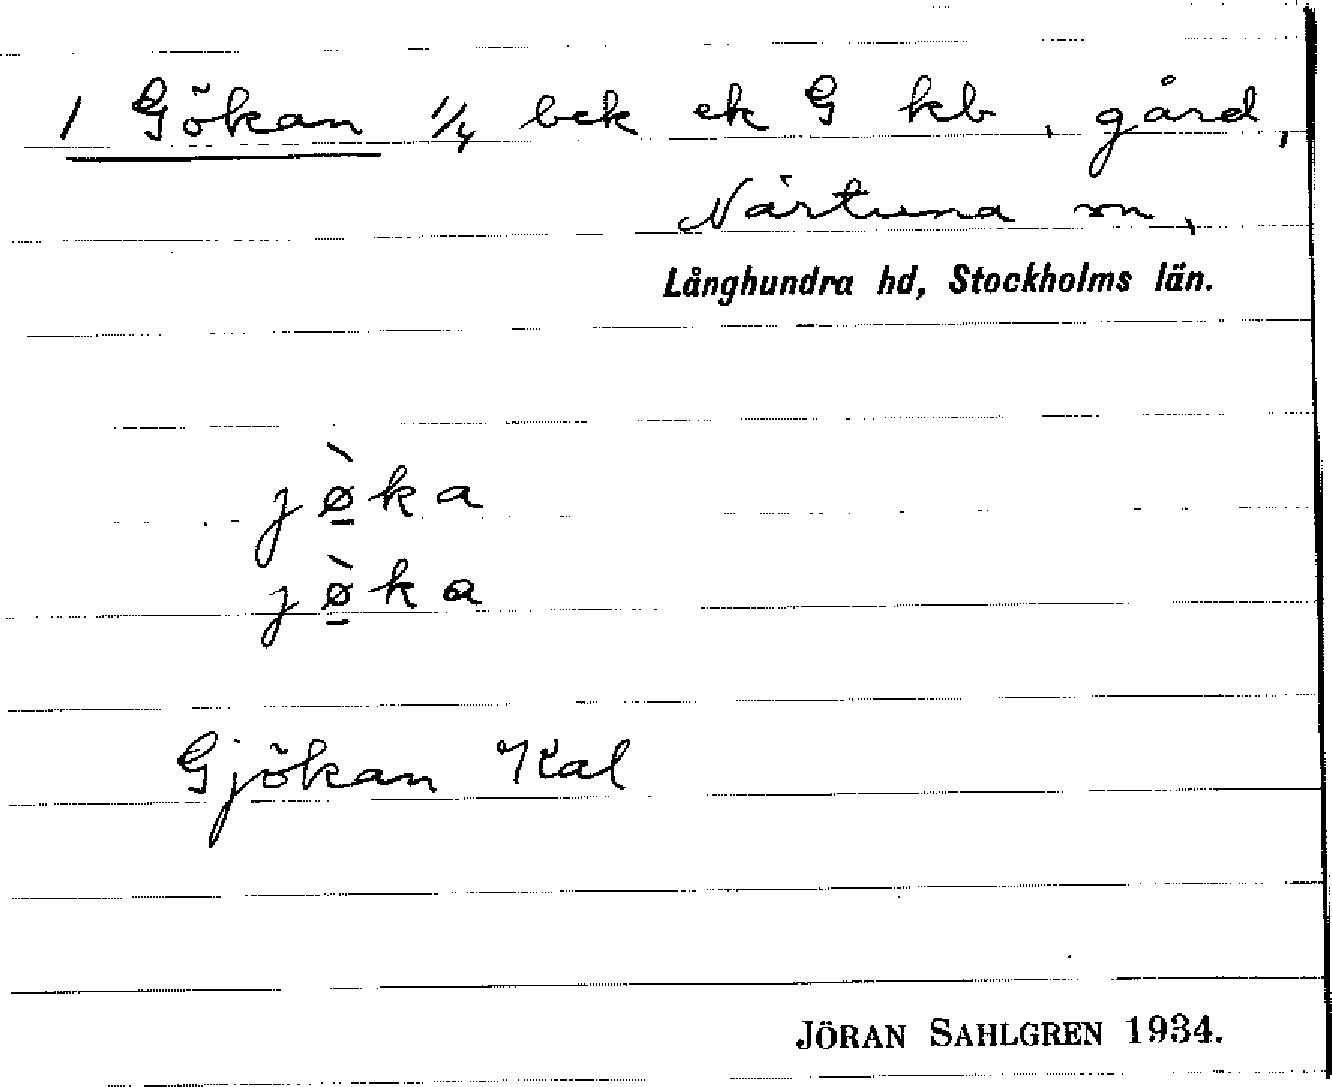 1 Gökan 1/4 bek ek G kb, gård,
Närtuna sn,
Långhundra hd, Stockholms län.
jø̱̀ka
jø̱̀ka
Gjökan Kal
JÖRAN SAHLGREN 1934.